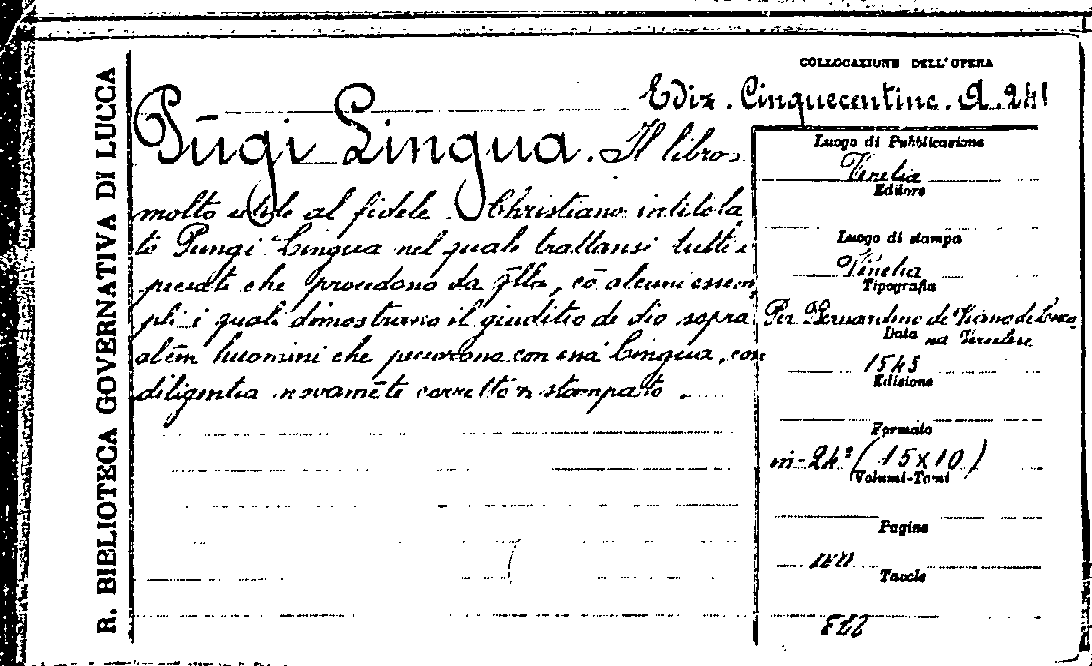 R. BIBLIOTECA GOVERNATIVA DI LUCCA
COLLOCAZIONE DELL'OPERA
Ediz. Cinquecentine. A. 241
Pūgi Lingua. Il libro
molto utile al fidele Christiano intitola
to Pungi Lingua nel quale trattansi tutti i
peccati che procedono da q̄lla, cō alcuni essem
pli i quali dimostrano il giuditio de dio sopra
alcūi huomini che peccorono con essa Lingua, con
diligentia novamēte corretto & stampato.
Luogo di Pubblicazione
Venetia
Editore
Luogo di stampa
Venetia
Tipografia
Per Bernardino de Viano de
Data
1543
Edizione
Formato
in-24° (15x10)
Volumi-Tomi
Pagine
Tavole